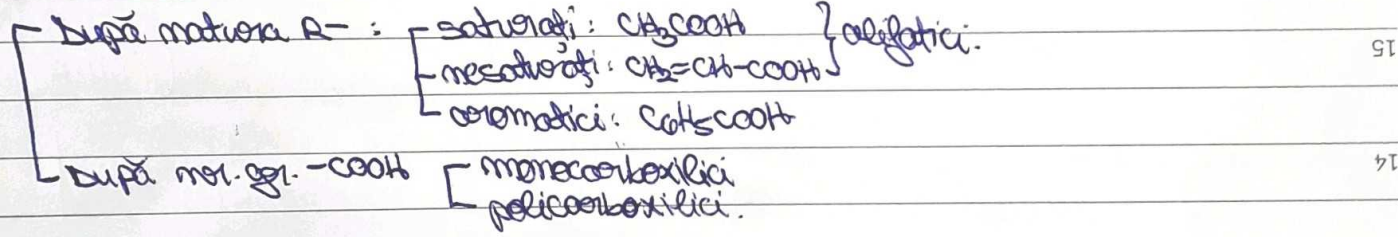 După natura R- : saturați: CH3COOH } alifatici.
nesaturați: CH2=CH-COOH
aromatici: C6H5COOH
După nr. gr. -COOH monocarboxilici
policarboxilici.
15
14